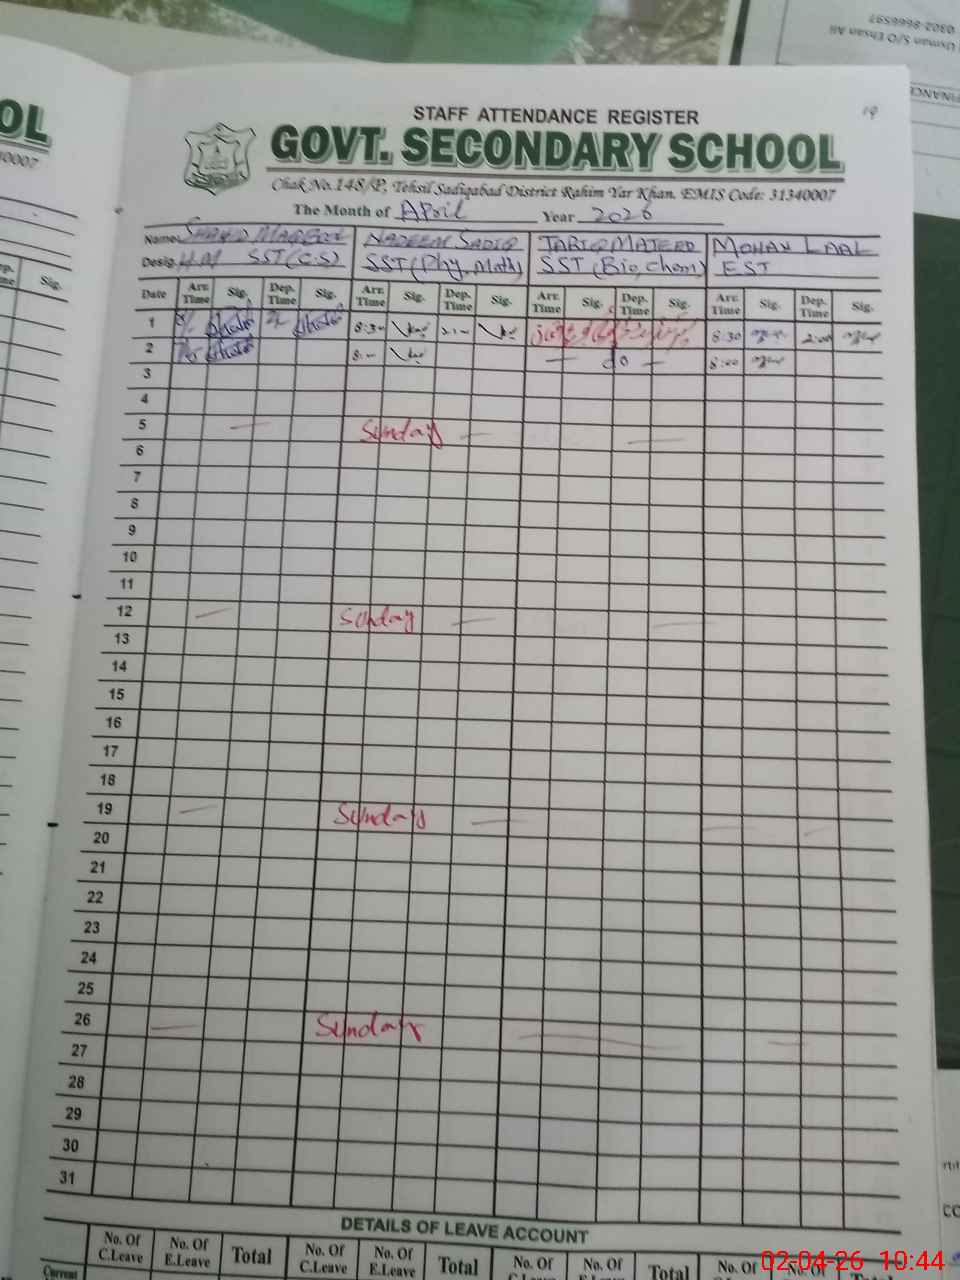 0302-8666597
Usman S/O Ehsan Ali
FINANCE
OL
40007
19
STAFF ATTENDANCE REGISTER
GOVT. SECONDARY SCHOOL
Chak No.148/P, Tehsil Sadiqabad District Rahim Yar Khan. EMIS Code: 31340007
The Month of April Year 2026
Name: SHAHID MAQBOOL NADEEM SADIQ TARIQ MAJEED MOHAN LAAL
Desig. H.M SST(C.S) SST(Phy, Math) SST(Bio, Chem) EST
Date Arr. Time Sig. Dep. Time Sig. Arr. Time Sig. Dep. Time Sig. Arr. Time Sig. Dep. Time Sig. Arr. Time Sig. Dep. Time Sig.
1 8:30 8:30 2:00
2 — do — 8:00
3
4
5 — Sunday — —
6
7
8
9
10
11
12 — Sunday — —
13
14
15
16
17
18
19 — Sunday — — —
20
21
22
23
24
25
26 — Sunday — —
27
28
29
30
31
DETAILS OF LEAVE ACCOUNT
No. Of C.Leave No. Of E.Leave Total No. Of C.Leave No. Of E.Leave Total No. Of C.Leave No. Of Total No. Of No. Of
Current
02-04-26 10:44